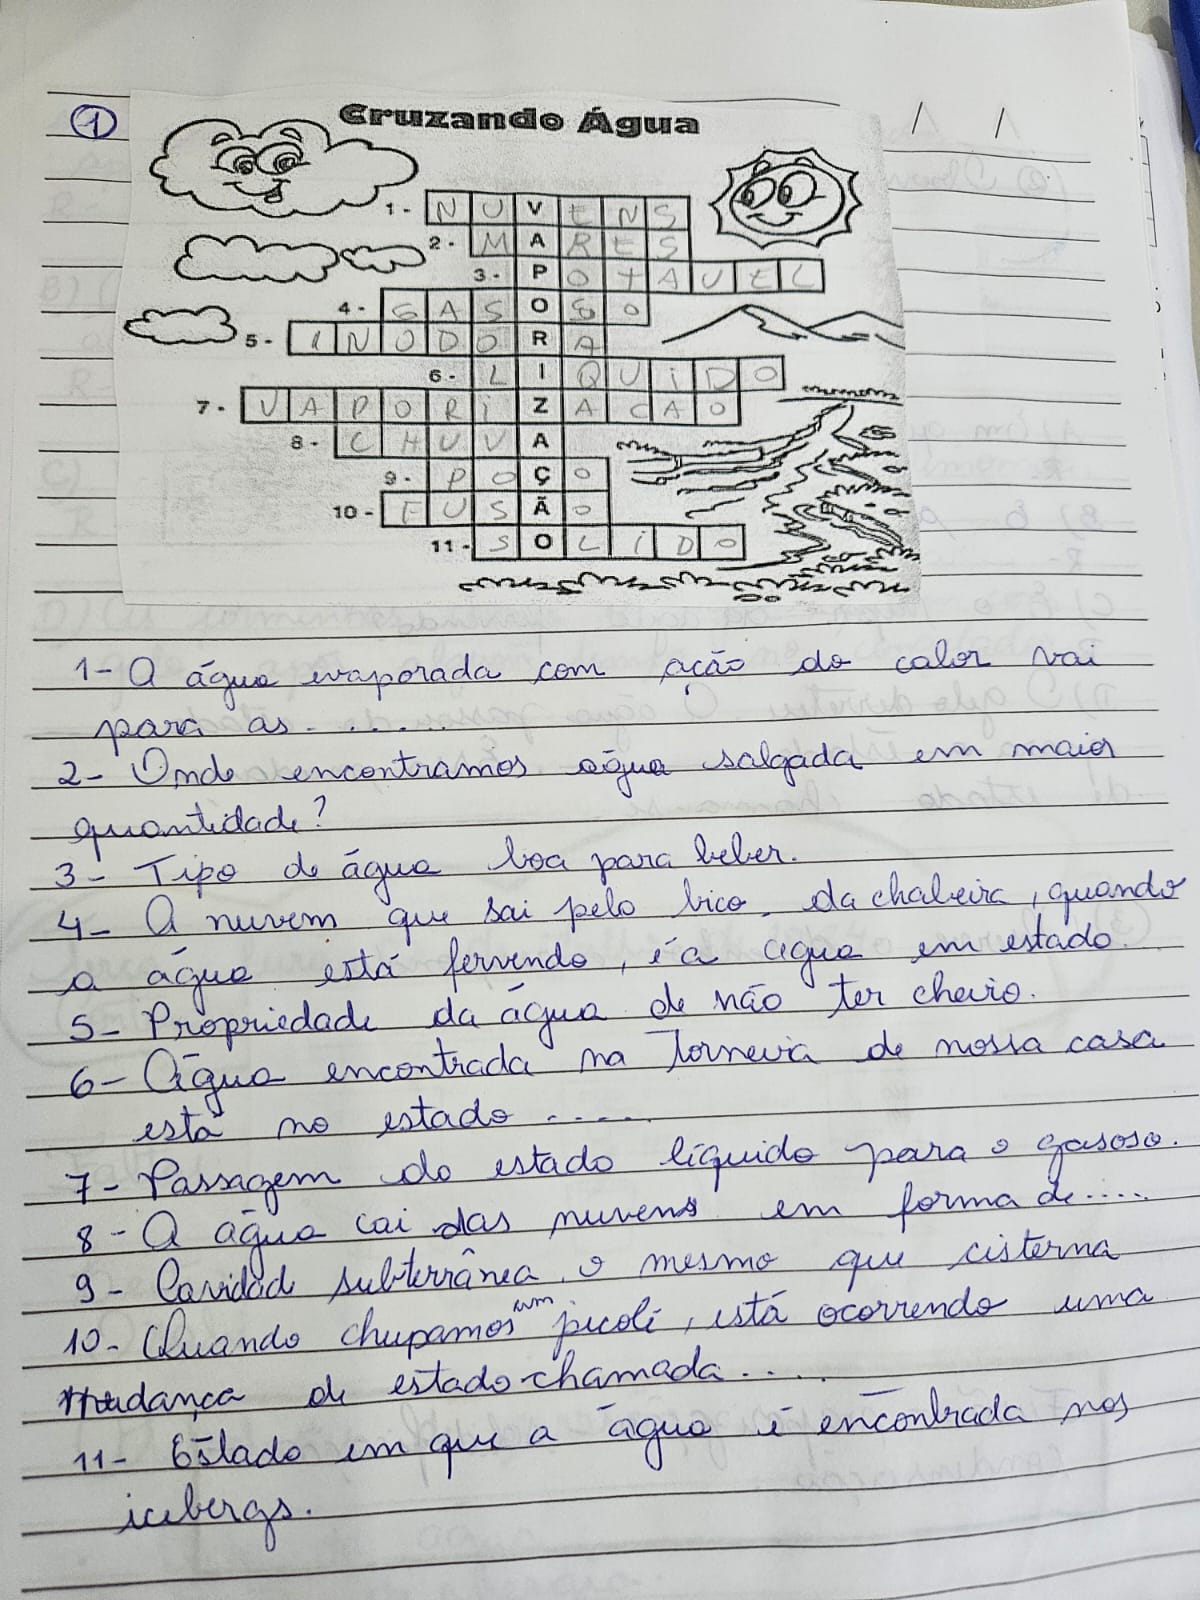 1
Cruzando Água
/ /
1 - NUVENS
2 - MARES
3 - POTAVEL
4 - GASOSO
5 - INODORA
6 - LIQUIDO
7 - VAPORIZACAO
8 - CHUVA
9 - POÇO
10 - FUSÃO
11 - SOLIDO
1- A água evaporada com ação do calor vai
para as. .....
2- Onde encontramos água salgada em maior
quantidade?
3- Tipo de água boa para beber.
4- A nuvem que sai pelo bico da chaleira, quando
a água está fervendo, é a água em estado.
5- Propriedade da água de não ter cheiro.
6- Água encontrada na Torneira de nossa casa
está no estado .....
7- Passagem do estado líquido para o gasoso.
8- A água cai das nuvens em forma de.....
9- Cavidad subterrânea, o mesmo que cisterna
10- Quando chupamos um picolé, está ocorrendo uma
mudança de estado chamada....
11- Estado em que a água é encontrada nos
icebergs.